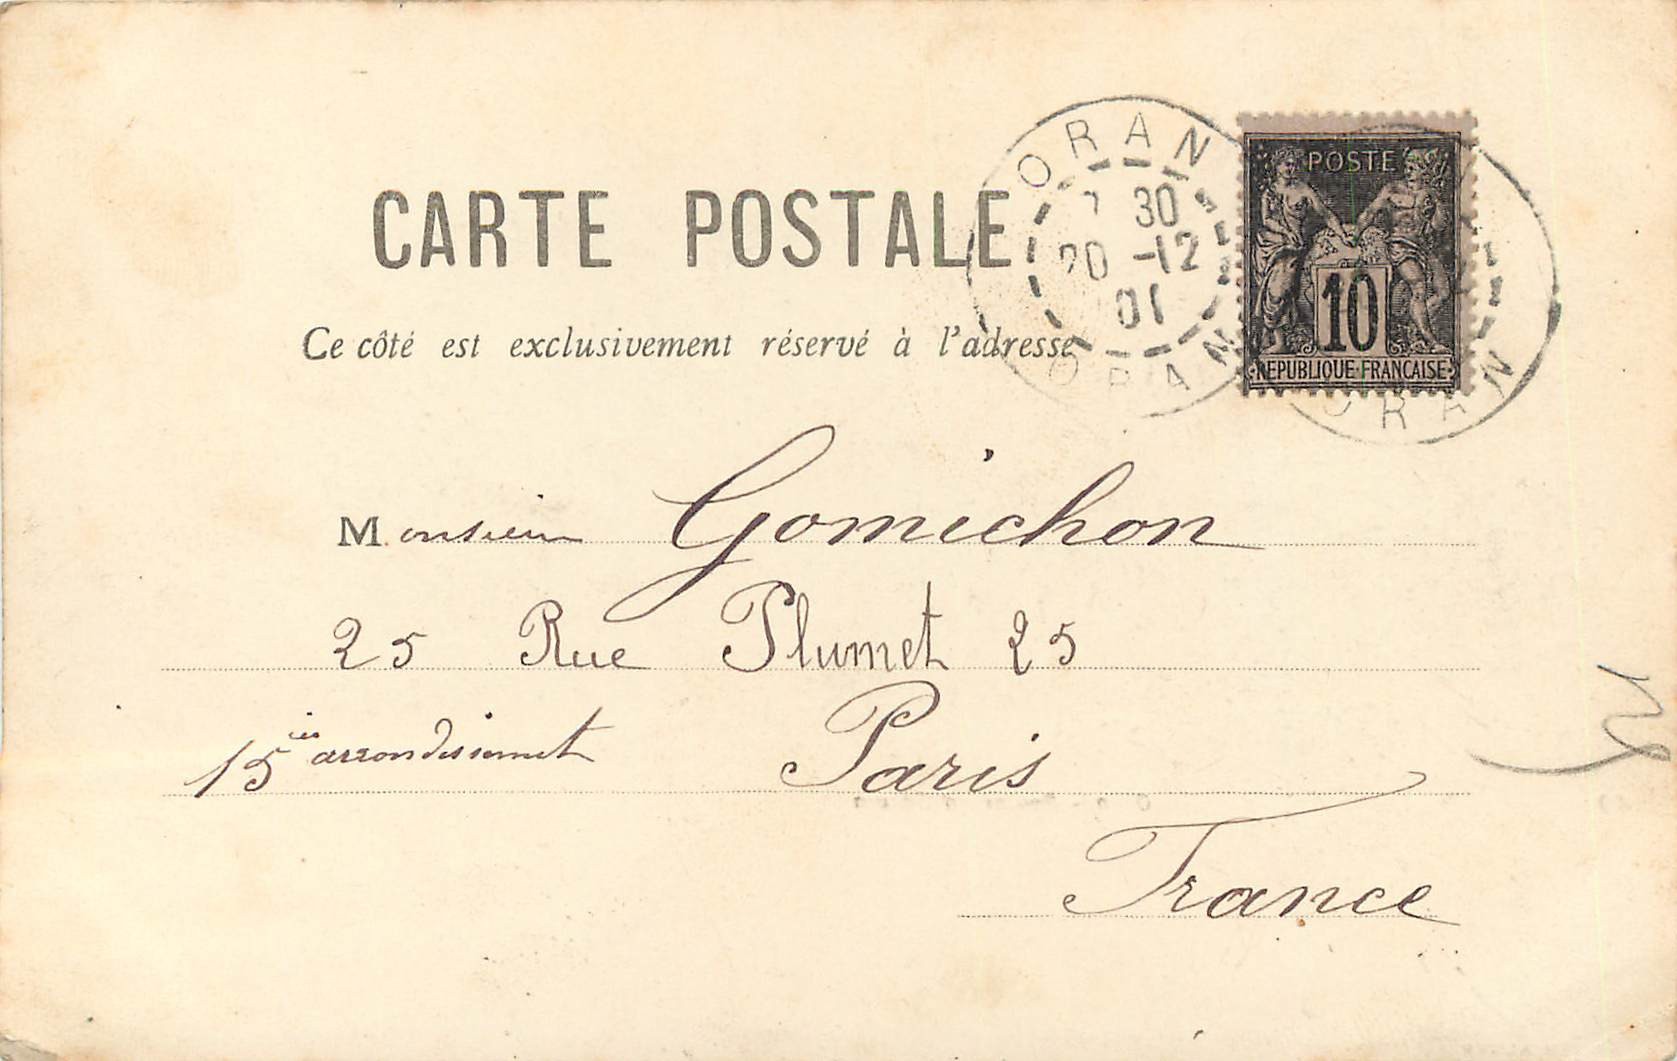 ORAN
7 30
20 -12
01
ORAN
POSTE
10
REPUBLIQUE FRANCAISE
ORAN
CARTE POSTALE
Ce côté est exclusivement réservé à l'adresse
Monsieur Gomichon
25 Rue Plumet 25
15 ies arrondissemet Paris
France